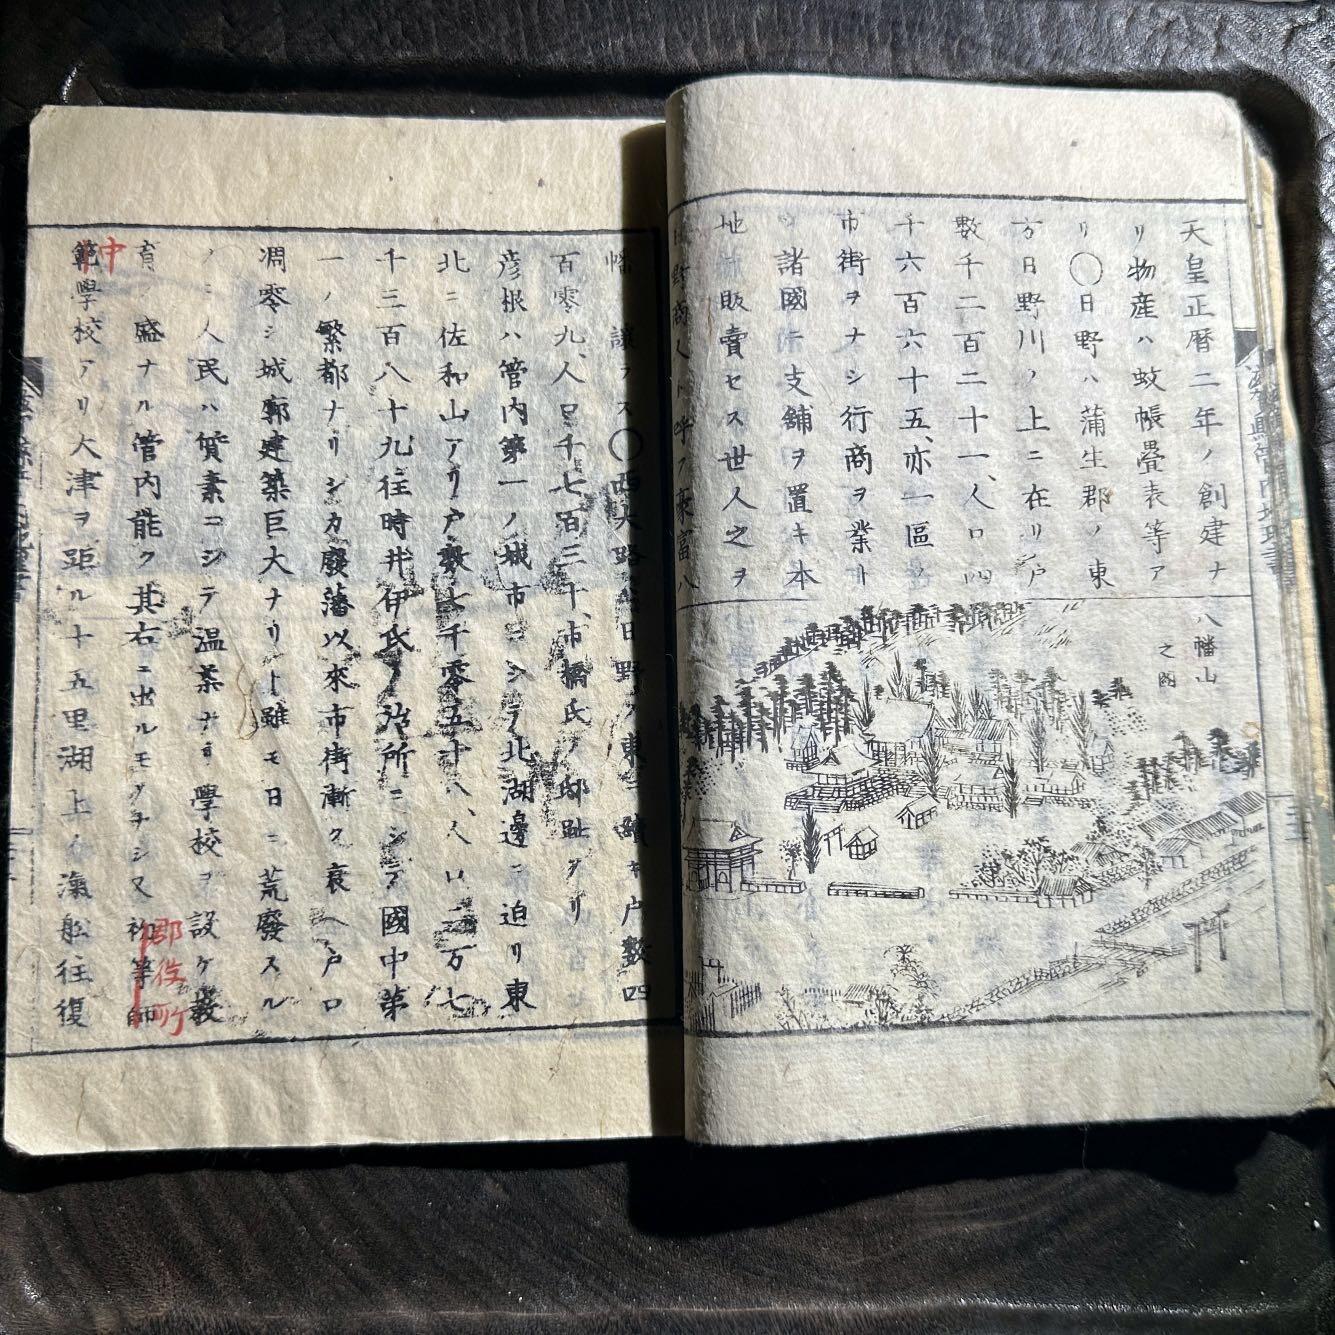 天皇正暦二年ノ創建ナ
リ物産ハ蚊帳疊表等ア
リ〇日野ハ蒲生郡ノ東
方日野川ノ上ニ在リ戸
數千二百二十一、人口四
千六百六十五、亦一區ノ
市街ヲナシ行商ヲ業ト
シ諸國ニ支舗ヲ置キ本
地ニ販賣セス世人之ヲ
日野商人ト呼フ豪富八
八幡山
之図
滋賀縣管内地理書
幡ニ讓ラス〇西大路ハ日野ノ東ニ續キ戸數四
百零九、人口千七百三十、市橋氏ノ邸趾アリ
彦根ハ管内第一ノ城市ニシテ北湖邊ニ迫リ東
北ニ佐和山アリ戸數七千零五十八、人口二万七
千三百八十九往時井伊氏ノ治所ニシテ國中第
一ノ繁都ナリシカ廢藩以來市街漸ク衰ヘ戸口
凋零シ城廓建築巨大ナリト雖モ日ニ荒廢スル
ノミ人民ハ質素ニシテ温柔ナリ學校ヲ設ケ教
育ノ盛ナル管内能ク其右ニ出ルモノナシ又初等師
範學校アリ大津ヲ距ル十五里湖上ハ滊船往復
中
郡役町